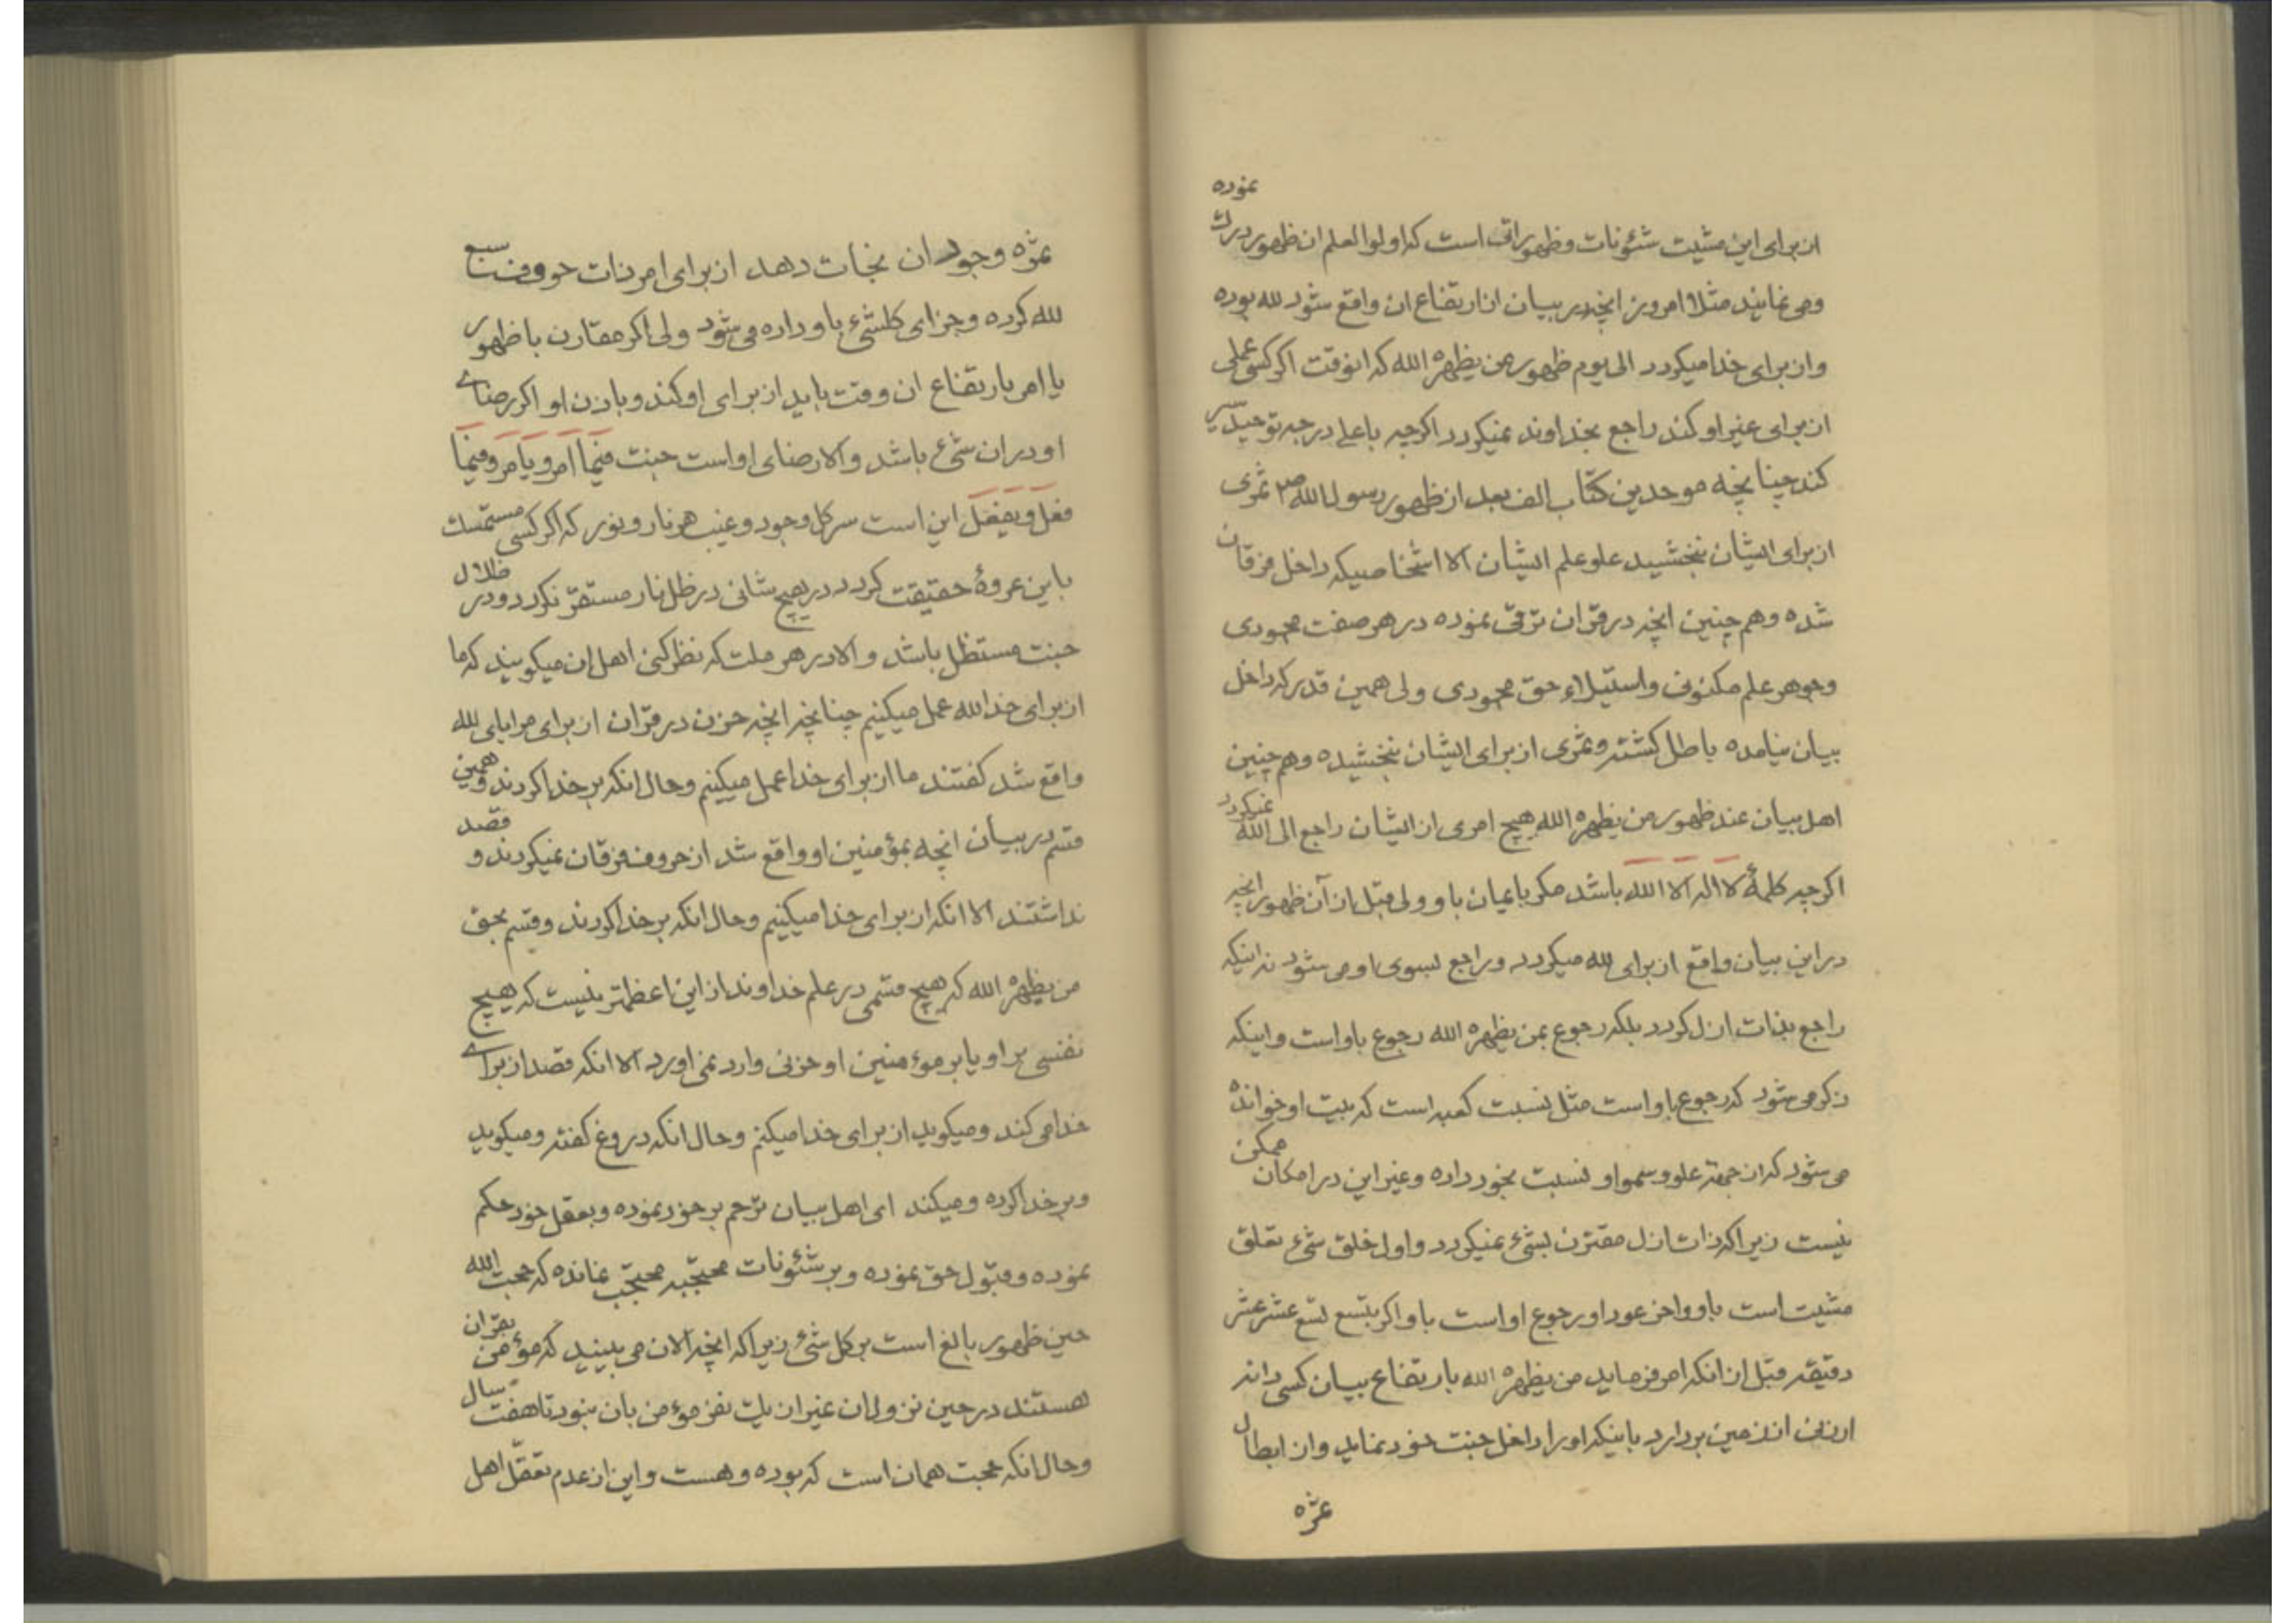 از برای این مشیت شئونات و ظهوراتی است که اولوا العلم ان ظهور درك نموده
ومی نمایند مثلا امروز انچه در بیان از ارتفاع ان واقع شود لله بوده
و از برای خدا میکردد الی یوم ظهور من یظهره الله که انوقت اکر کسی عملی
از برای غیر او کند راجع بخداوند نمیکردد اکرچه باعلی درجه توحید سیر
کند چنانچه موحدین کتاب الف بعد از ظهور رسول الله ص ثمری
از برای ایشان نبخشید علو علم ایشان الا اشخاصیکه داخل فرقان
شده و هم چنین انچه در قرآن ترقی نموده در هر صفت محمودی
و جوهر علم مکنونی و استیلاء حق محمودی ولی همین قدر که داخل
بیان نیامده باطل کشته و ثمری از برای ایشان نبخشیده و هم چنین
اهل بیان عند ظهور من یظهره الله هیچ امری از ایشان راجع الی الله نمیکردد
اکرچه کلمهٔ لا اله الا الله باشد مکر بایمان باو ولی قبل از آن ظهور انچه
در این بیان واقع از برای لله میکردد و راجع بسوی او می شود نه اینکه
راجع بذات ازل کردد بلکه رجوع بمن یظهره الله رجوع باو است و اینکه
ذکر می شود که رجوع باو است مثل نسبت کعبه است که بیت او خوانده
می شود که از جهة علو و سمو او نسبت بخود داده و غیر این در امکان ممکن
نیست زیرا که ذات ازل مقترن بشیء نمیکردد و اول خلق شیء تعلق
مشیت است باو و اخر عود او رجوع او است باو اکر بتسع تسع عشر عشر
دقیقه قبل از انکه امر فرماید من یظهره الله بارتفاع بیان کسی دانه
ارزنی از زمین بردارد باینکه او را داخل جنت خود نماید و از ابطال
ثمره
ثمره وجود ان نجات دهد از برای امر ذات حروف سبع
لله کرده و جزای کلشیء باو داده می شود ولی اکر مقارن با ظهور
یا امر بارتفاع ان وقت باید از برای او کند و باذن او اکر رضای
او در ان شیء باشد و الا رضای او است جنت فیما امر و یامر و فیما
فعل و یفعل این است سر کل وجود و غیب هر نار و نور که اکر کسی مستمسك
باین عروهٔ حقیقت کردد در هیچ شانی در ظل نار مستقر نکردد و در ظلال
جنت مستظل باشد و الا در هر ملت که نظر کنی اهل ان میکویند که ما
از برای خدا لله عمل میکنیم چنانچه انچه حزن در قرآن از برای مرایای لله
واقع شد کفتند ما از برای خدا عمل میکنیم و حال انکه بر خدا کردند و همین
قسم در بیان انچه بمؤمنین او واقع شد از حروف فرقان نمیکردند و قصد
نداشتند الا انکه از برای خدا میکنیم و حال انکه بر خدا کردند و قسم بحق
من یظهره الله که هیچ قسمی در علم خداوند از این اعظمتر نیست که هیچ
نفسی بر او یا بر مؤمنین او حزنی وارد نمی اورد الا انکه قصد از برای
خدا می کند و میکوید از برای خدا میکنم و حال انکه دروغ کفته و میکوید
و بر خدا کرده و میکند ای اهل بیان ترحم بر خود نموده و بعقل خود حکم
نموده و قبول حق نموده و بر شئونات محتجبه محتجب نمانده که حجت الله
حین ظهور بالغ است بر کل شیء زیرا که انچه الان می بینید که مؤمن بقران
هستند در حین نزول ان غیر از یك نفر مؤمن بان نبود تا هفت سال
و حال انکه حجت همان است که بوده و هست و این از عدم تعقل اهل